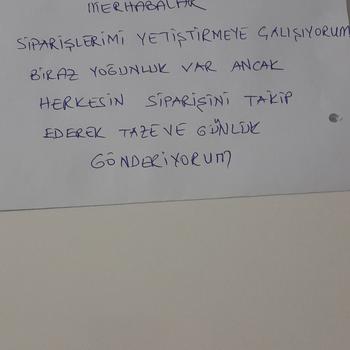 MERHABALAR
SİPARİŞLERİMİ YETİŞTİRMEYE ÇALIŞIYORUM
BİRAZ YOĞUNLUK VAR ANCAK
HERKESİN SİPARİŞİNİ TAKİP
EDEREK TAZE VE GÜNLÜK
GÖNDERİYORUM